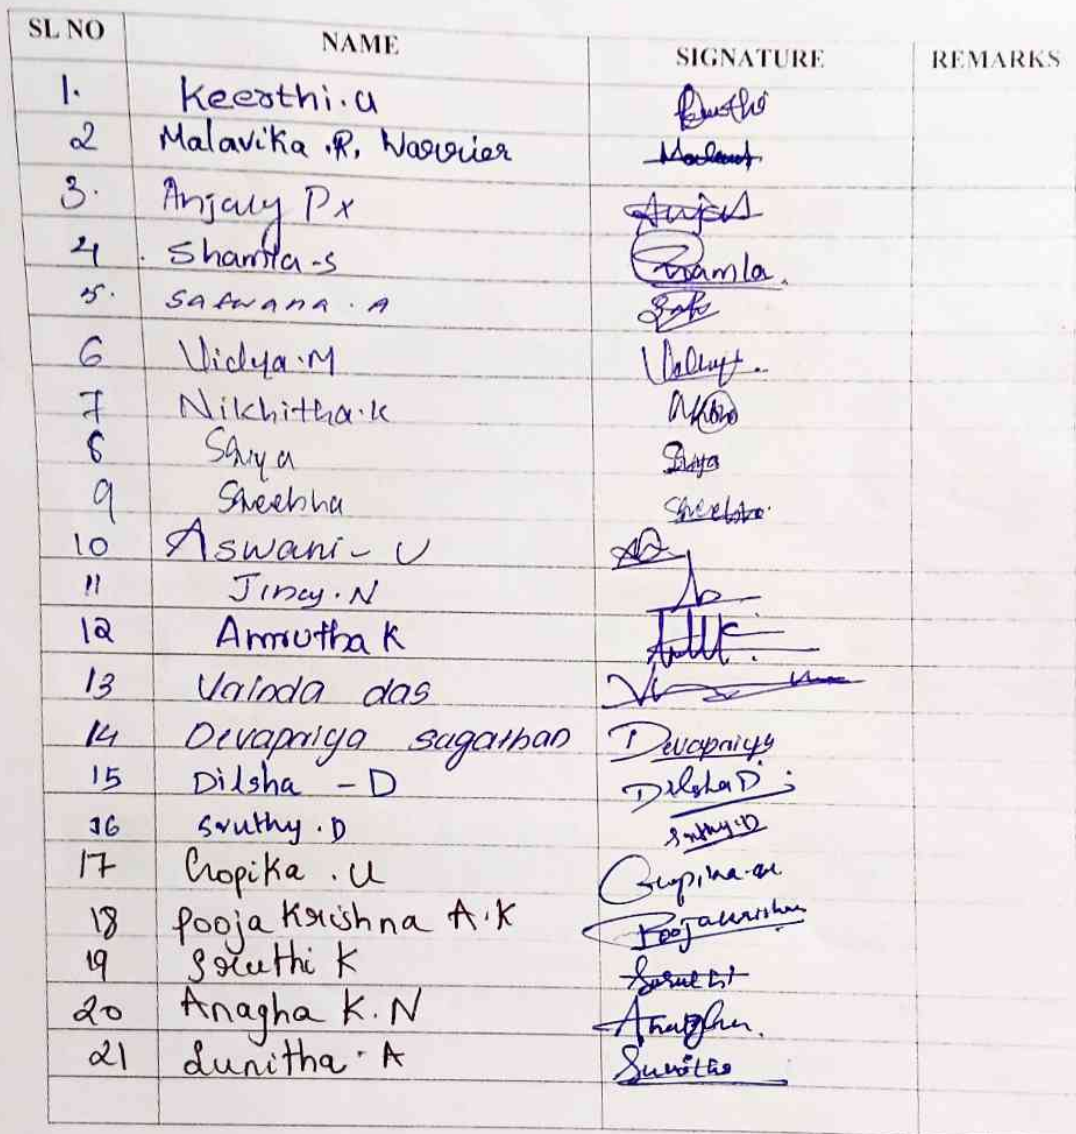 SL NO NAME SIGNATURE REMARKS
1. Keerthi.U
2 Malavika .R. Warrier
3. Anjaly Px
4. Shamla-S Shamla.
5. Safwana. A
6 Vidya.M
7 Nikhitha.K
8 Sriya Sriya
9 Sreebha Sreebha
10 Aswani-U
11 Jincy.N
12 Amrutha K
13 das
14 Devapriya sugathan Devapriya
15 Dilsha - D Dilsha D
16 Sruthy.D Sruthy.D
17 Gopika . U Gopika
18 Pooja Krishna A.K Poojakrishna
19 Sruthi K
20 Anagha K.N
21 Sunitha. A Sunitha